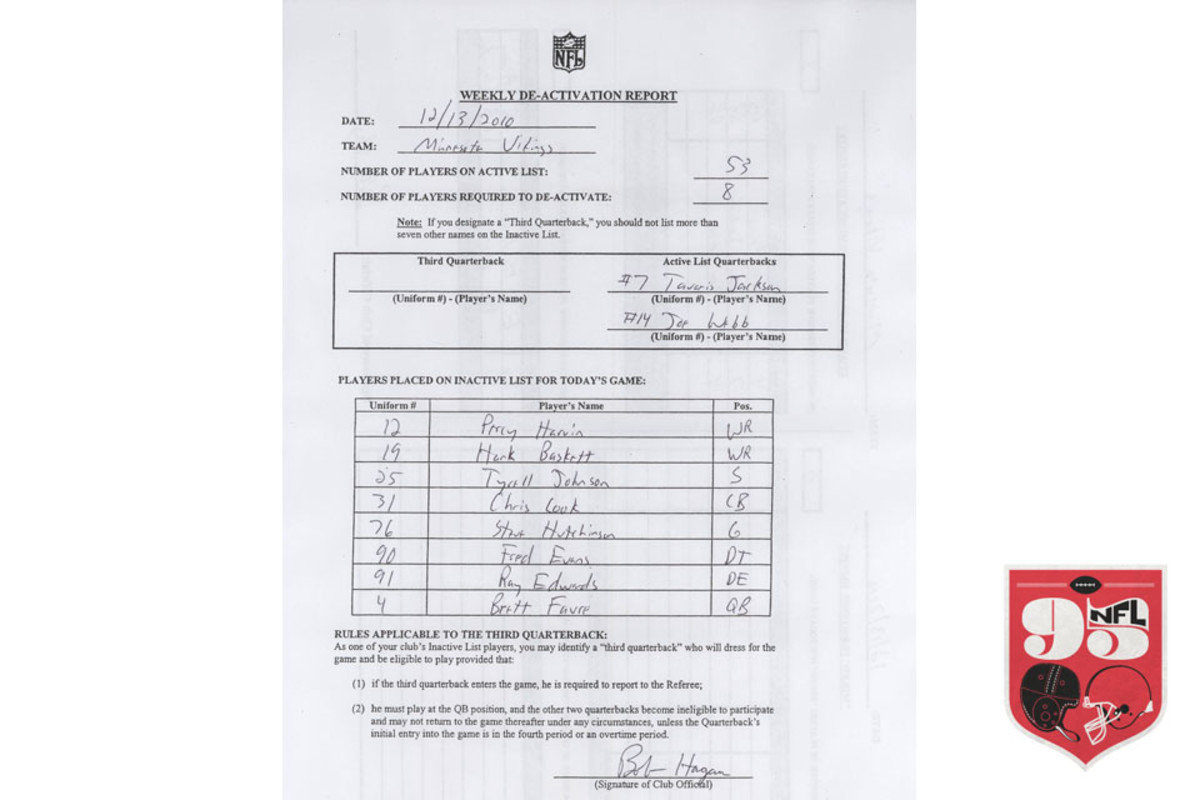 NFL
WEEKLY DE-ACTIVATION REPORT
DATE: 12/13/2010
TEAM: Minnesota Vikings
NUMBER OF PLAYERS ON ACTIVE LIST: 53
NUMBER OF PLAYERS REQUIRED TO DE-ACTIVATE: 8
Note: If you designate a "Third Quarterback," you should not list more than
seven other names on the Inactive List.
Third Quarterback Active List Quarterbacks
#7 Tavaris Jackson
(Uniform #) - (Player's Name) (Uniform #) - (Player's Name)
#14 Joe Webb
(Uniform #) - (Player's Name)
PLAYERS PLACED ON INACTIVE LIST FOR TODAY'S GAME:
Uniform # Player's Name Pos.
12 Percy Harvin WR
19 Hank Baskett WR
25 Tyrell Johnson S
31 Chris Cook CB
76 Steve Hutchinson G
90 Fred Evans DT
91 Ray Edwards DE
4 Brett Favre QB
RULES APPLICABLE TO THE THIRD QUARTERBACK:
As one of your club's Inactive List players, you may identify a "third quarterback" who will dress for the
game and be eligible to play provided that:
(1) if the third quarterback enters the game, he is required to report to the Referee;
(2) he must play at the QB position, and the other two quarterbacks become ineligible to participate
and may not return to the game thereafter under any circumstances, unless the Quarterback's
initial entry into the game is in the fourth period or an overtime period.
Bob Hagan
(Signature of Club Official)
95 NFL